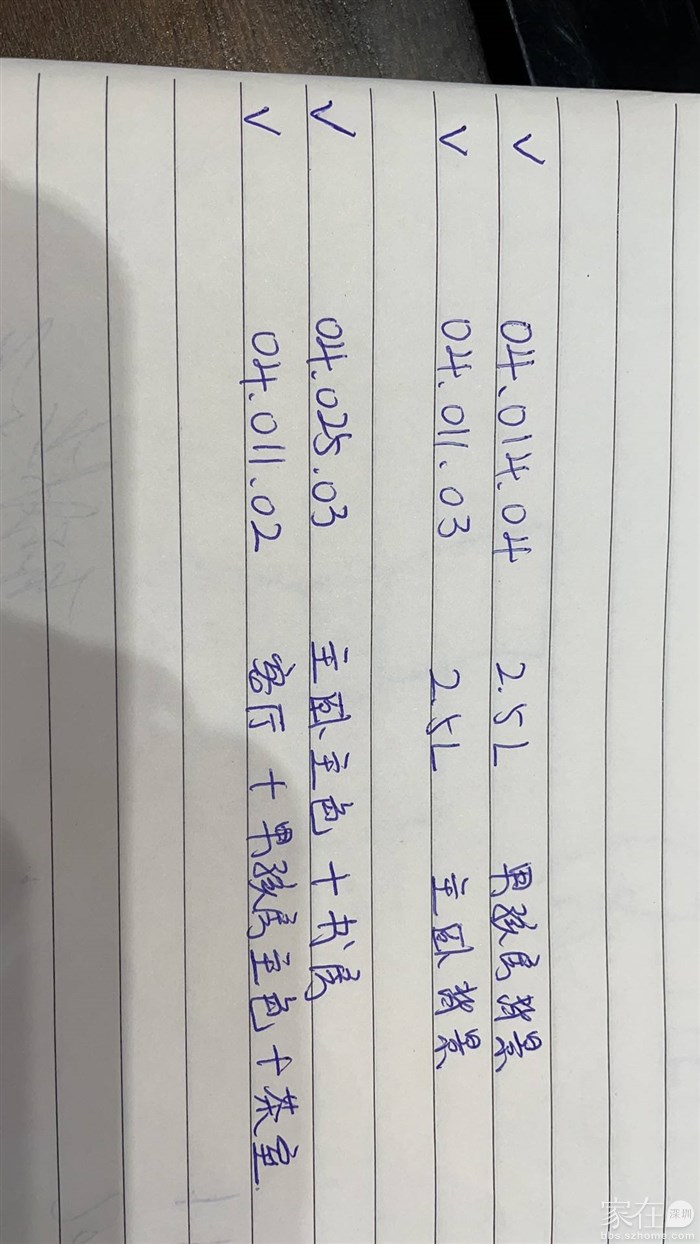 ✓ 04.014.04 2.5L 男孩房背景
✓ 04.011.03 2.5L 主卧背景
✓ 04.025.03 主卧主色+书房
✓ 04.011.02 客厅+男孩房主色+茶室
家在深圳
bbs.szhome.com